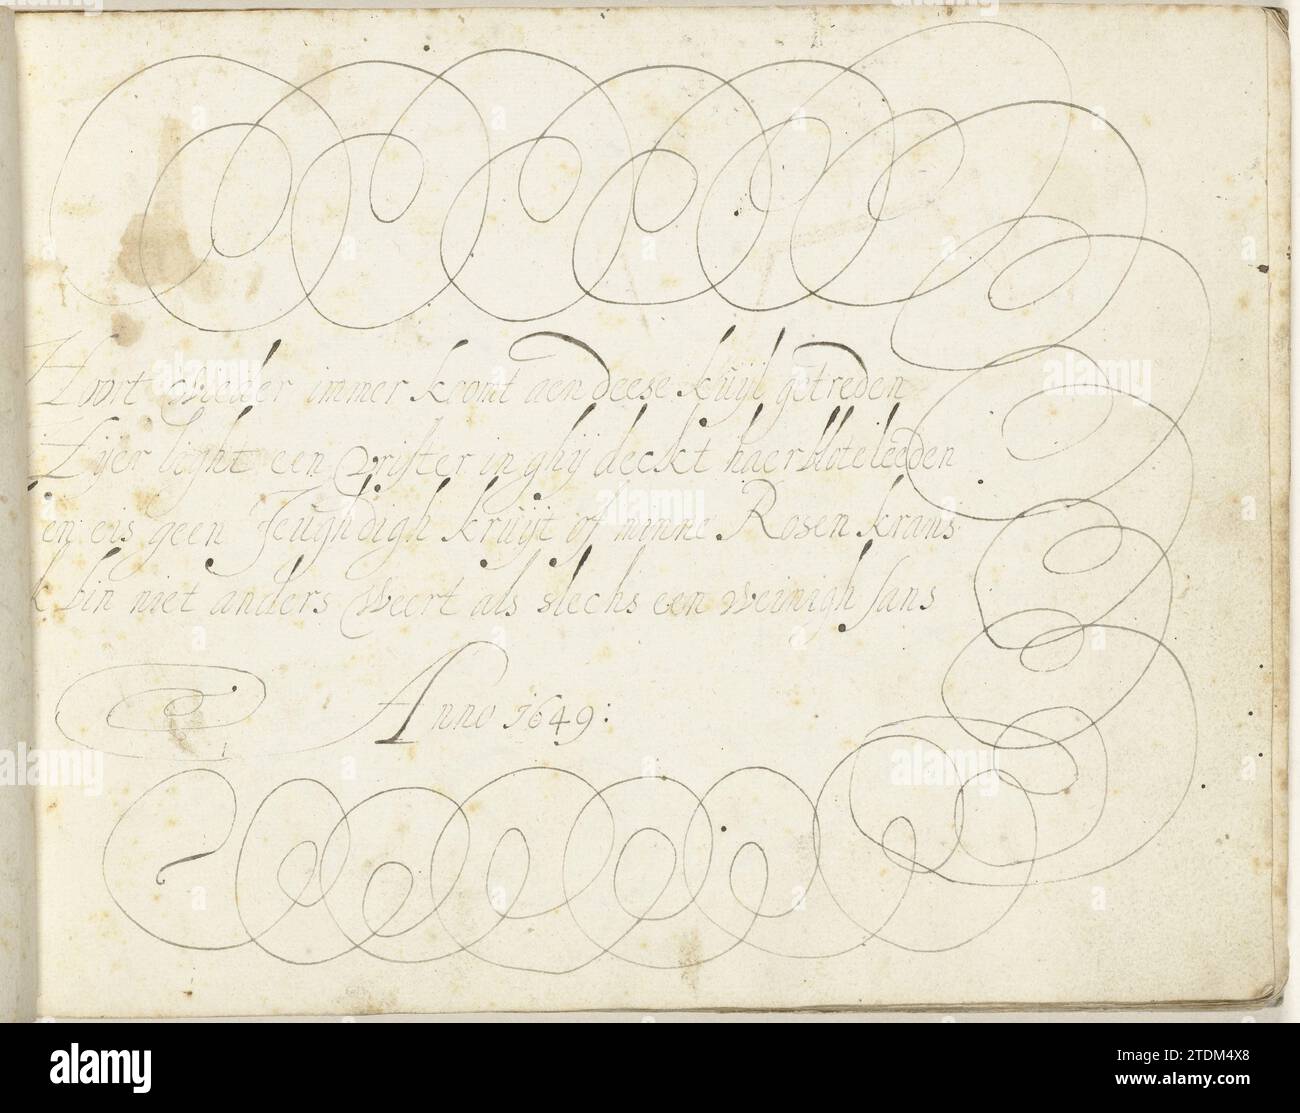 Hoort Wieder immer koomt aen deese kuijl getreden
Hijer leght een Vrijster in ghij deckt haer blote leeden
en eis geen Jeughdigh kruijt of minne Rosen krans
k bin niet anders Weert als slechs een weinigh sans
Anno 1649:
alamy
Image ID: 2TDM4X8
www.alamy.com